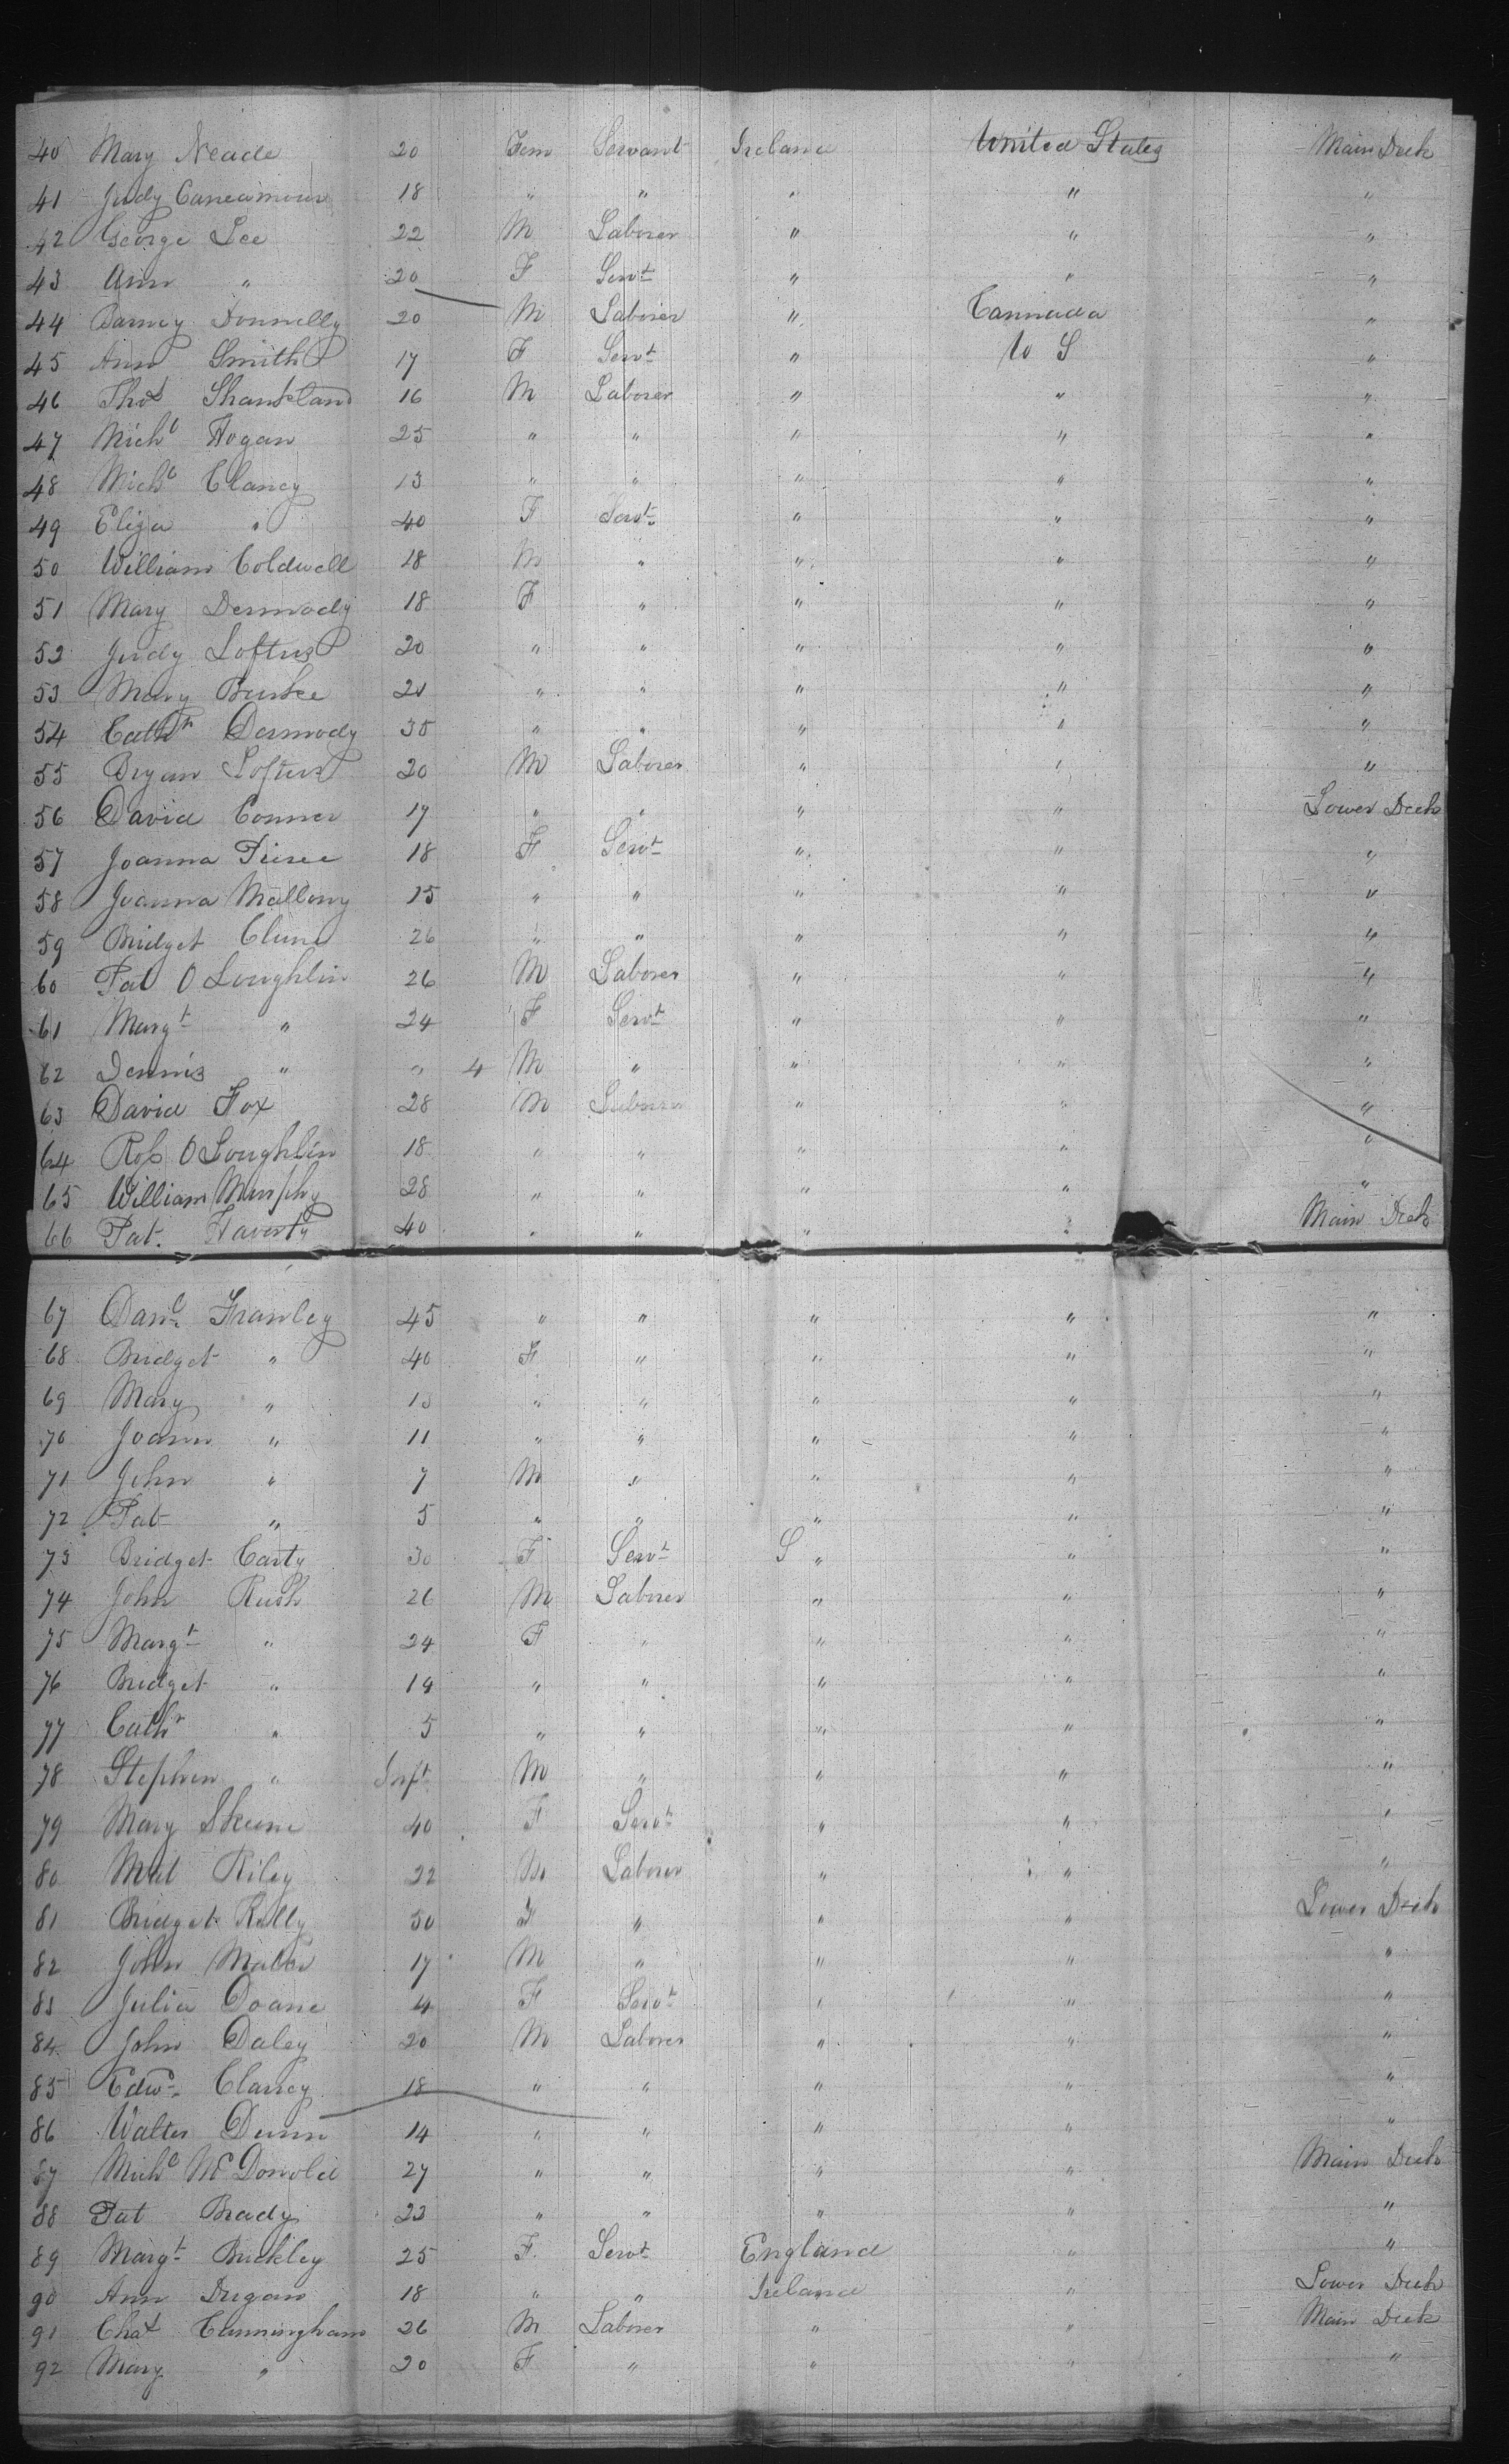 40 Mary Neade 20 Fem Servant Ireland United States Main Deck
41 Judy 18 " " " " "
42 George Lee 22 M Laborer " " "
43 Ann " 20 F Servt " " "
44 Barney Donnelly 20 M Laborer " Cannada "
45 Ann Smith 17 F Servt " U S "
46 Thos Shankland 16 M Laborer " " "
47 Michl Hogan 25 " " " " "
48 Michl Clancy 13 " " " " "
49 Eliza " 40 F Servt " " "
50 William Coldwell 18 M " " " "
51 Mary Dermody 18 F " " " "
52 Judy Loftus 20 " " " " "
53 Mary Burke 20 " " " " "
54 Cathn Dermody 35 " " " " "
55 Bryan Loftus 20 M Laborer " " "
56 David Conner 17 " " " " Lower Deck
57 Joanna Pierce 18 F Servt " " "
58 Joanna Mallony 15 " " " " "
59 Bridget Clune 26 " " " " "
60 Pat O Loughlin 26 M Laborer " " "
61 Margt " 24 F Servt " " "
62 Dennis " " 4 M " " " "
63 David Fox 28 M Laborer " " "
64 Ross O Loughlin 18 " " " " "
65 William Murphy 28 " " " " "
66 Pat. Haverty 40 " " " " Main Deck
67 Danl Frawley 45 " " " " "
68 Bridget " 40 F " " " "
69 Mary " 13 " " " " "
70 Joann " 11 " " " " "
71 John " 7 M " " " "
72 Pat " 5 " " " " "
73 Bridget Carty 30 F Servt S " " "
74 John Rush 26 M Laborer " " "
75 Margt " 24 F " " " "
76 Bridget " 14 " " " " "
77 Cathr " 5 " " " " "
78 Stephen " Inft M " " " "
79 Mary Skeene 40 F Servt " " "
80 Mat Riley 22 M Laborer " " "
81 Bridget Kelly 50 F " " " Lower Deck
82 John 17 M " " " "
83 Julia Doane 4 F Servt " " "
84 John Daley 20 M Laborer " " "
85 Edwd Clancy 18 " " " " "
86 Walter Dunn 14 " " " " "
87 Michl McDonold 27 " " " " Main Deck
88 Pat Brady 23 " " " " "
89 Margt Buckley 25 F. Servt England " "
90 Ann Dugan 18 " " Ireland " Lower Deck
91 Chas Cunningham 26 M Laborer " " Main Deck
92 Mary " 20 F " " " "